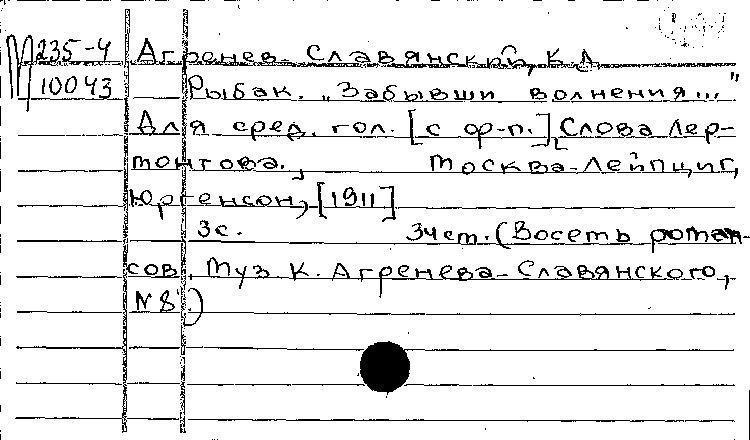 М 235-4 Агренев-Славянский, К.Д.
10043 Рыбак. "Забывши волнения..."
Для сред. гол. [с ф-п.], [Слова Лер-
монтова., Москва-Лейпциг,
Юргенсон, [1911]
3с. 34см. (Восемь роман-
сов. Муз К. Агренева-Славянского,
№ 8.)